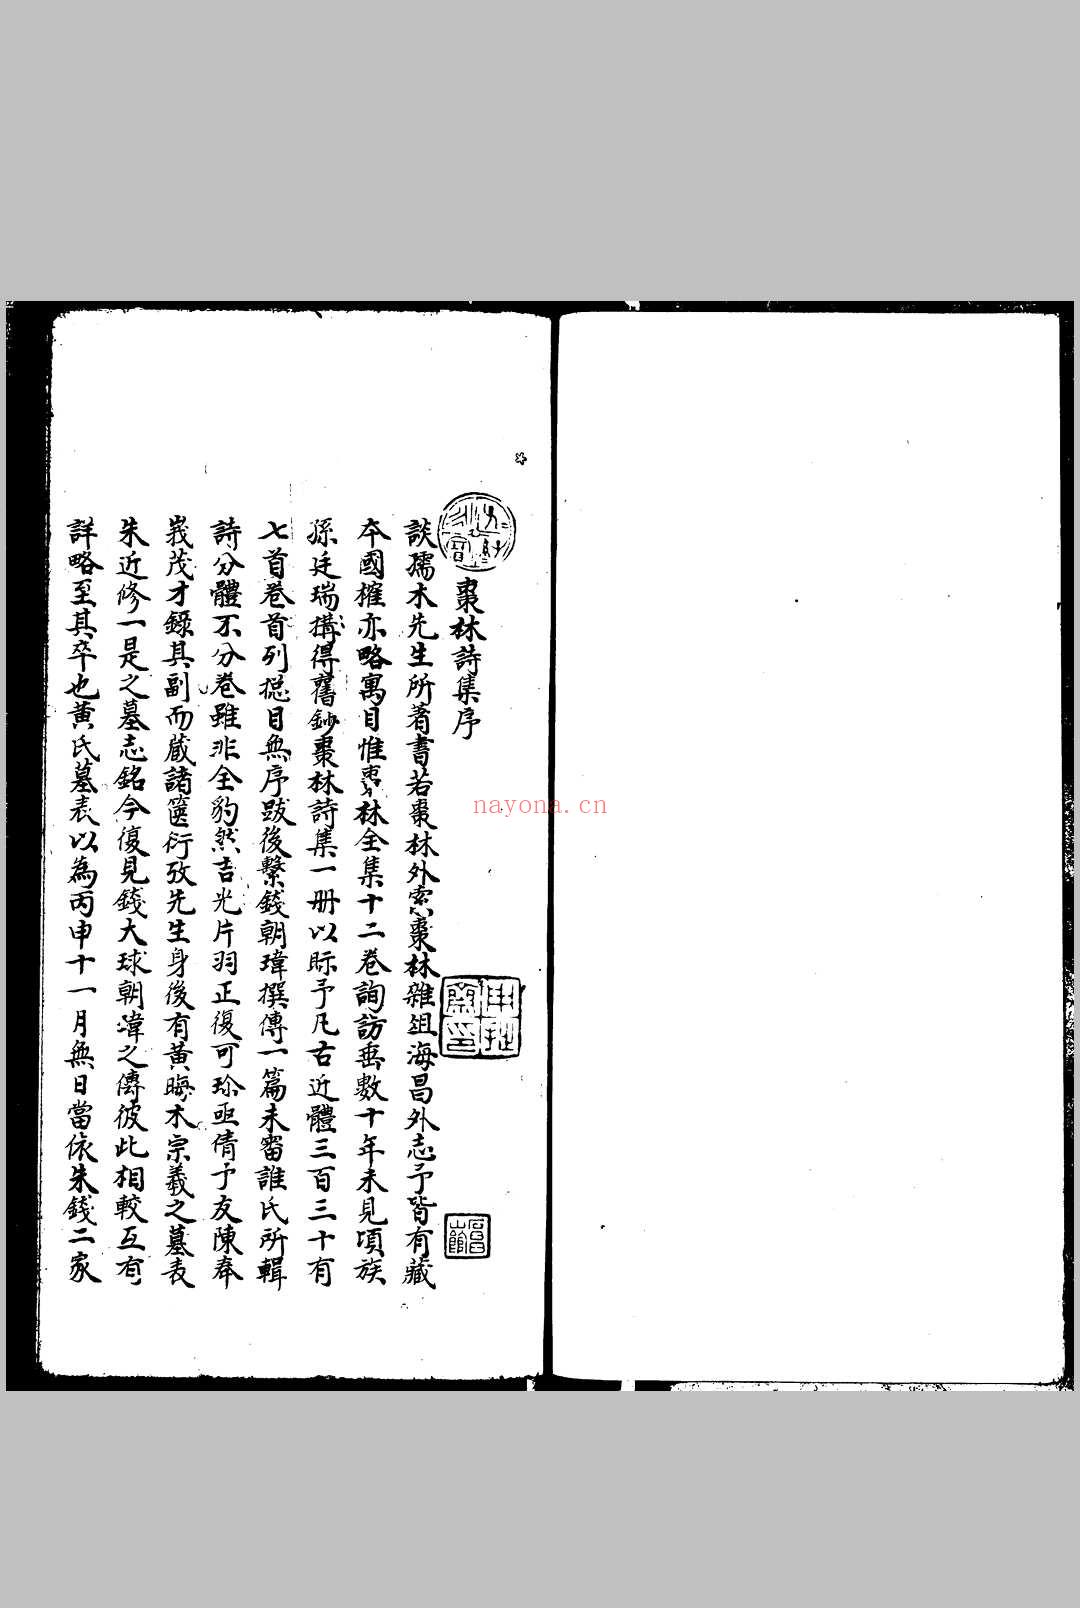 棗林詩集序
談孺木先生所著書若棗林外索棗林雜俎海昌外志予皆有藏
本國榷亦略寓目惟棗林全集十二卷詢訪垂數十年未見頃族
孫廷瑞搆得舊鈔棗林詩集一册以眎予凡古近體三百三十有
七首卷首列揔目無序跋後繫錢朝瑋撰傳一篇未審誰氏所輯
詩分體不分卷雖非全豹然吉光片羽正復可珍亟倩予友陳奉
峩茂才錄其副而藏諸篋衍攷先生身後有黃晦木宗羲之墓表
朱近修一是之墓志銘今復見錢大球朝瑋之傳彼此相較互有
詳略至其卒也黃氏墓表以為丙申十一月無日當依朱錢二家
nayona.cn